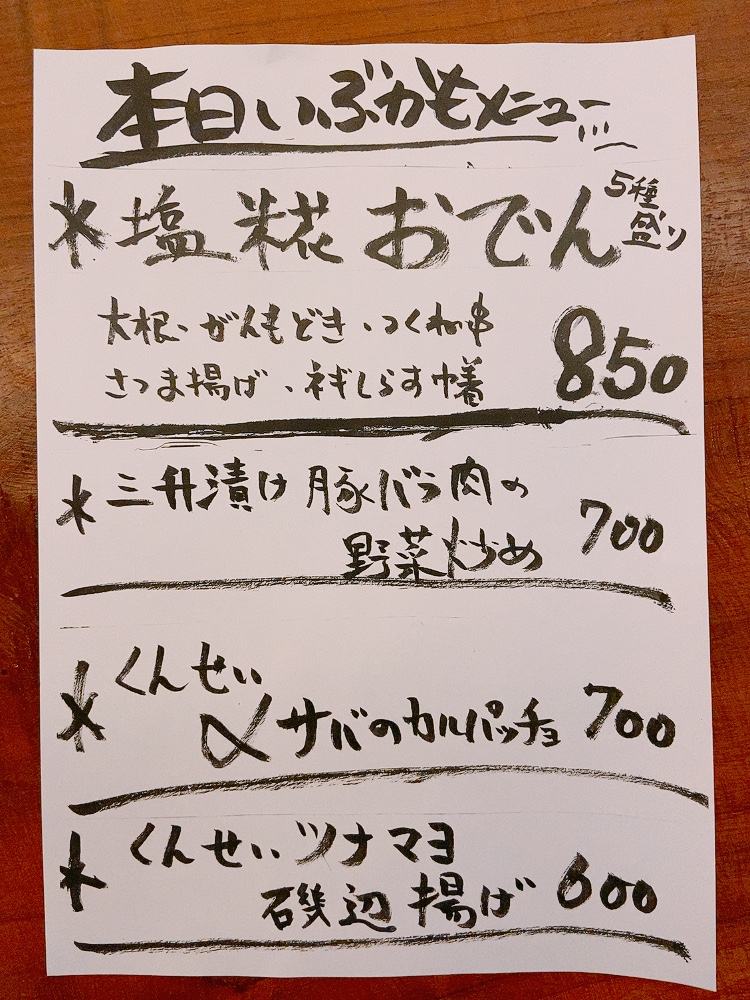 本日いぶかもメニュー
＊塩糀おでん 5種盛り
大根、がんもどき、つくね串
さつま揚げ、ネギしらす巾着 850
＊三升漬け 豚バラ肉の
野菜炒め 700
＊くんせい
〆サバのカルパッチョ 700
＊くんせいツナマヨ
磯辺揚げ 600